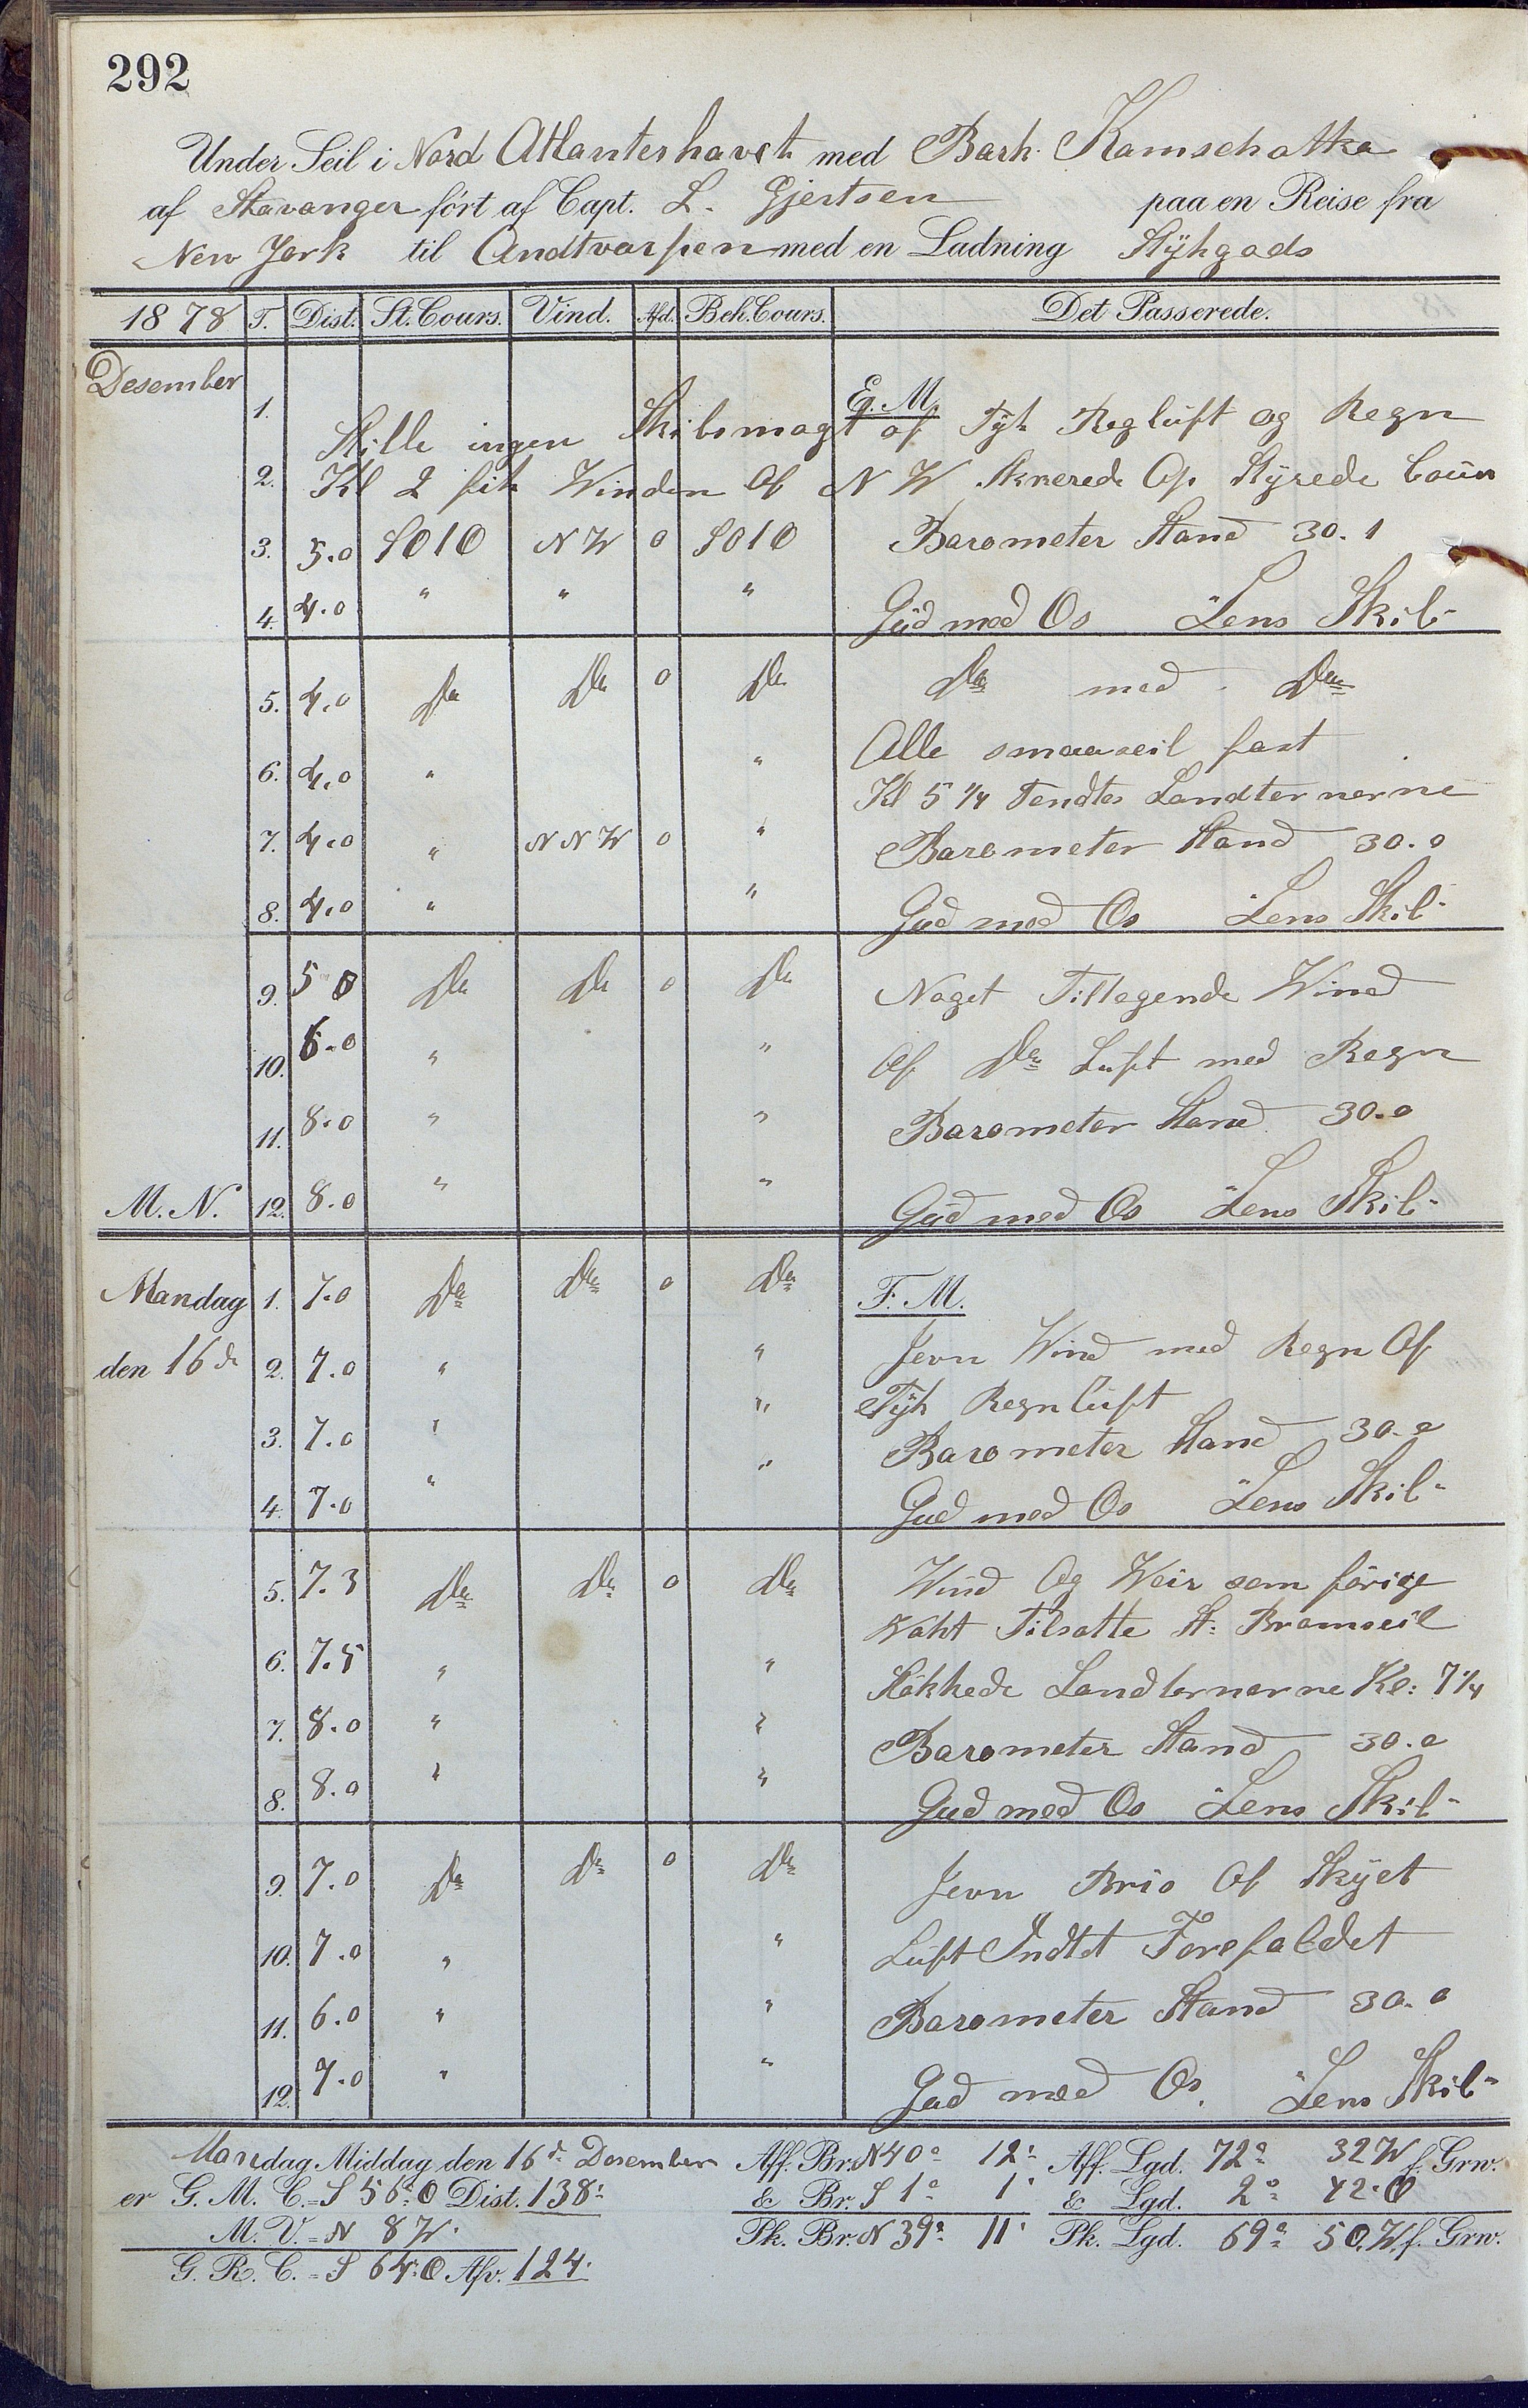 292
Under Seil i Nord Atlanterhavet med Bark Kamschatka
af Stavanger ført af Capt. L. Gjertsen paa en Reise fra
New York til Andtvarpen med en Ladning Stýkgods
1878 T. Dist. St. Cours. Vind. Afd. Beh. Cours. Det Passerede.
Desember
E. M.
1. Stille ingen Skibsmagt af Tyk Regluft og Regn
2. Kl 2 fik Winden Af N W Skverede Op Styrede Cours
3. 5.0 SO1O N W 0 SO1O Barometer Stand 30.1
4. 4.0 " " " Gud med Os Lens Skib-
5. 4.0 Do Do 0 Do Do med Do
6. 4.0 " " Alle smaaseil fast
Kl 5 1/4 Tendtes Landternerne
7. 4.0 " N N W 0 " Barometer Stand 30.0
8. 4.0 " " Gud med Os Lens Skib-
9. 5 0 Do Do 0 Do Noget Tillegende Wind
10. 6.0 " " Af Do Luft med Regn
11. 8.0 " " Barometer Stand 30.0
M. N. 12. 8.0 " " Gud med Os Lens Skib-
Mandag 1. 7.0 Do Do 0 Do F. M.
den 16de 2. 7.0 " " Jevn Wind med Regn Af
Tyk Regnluft
3. 7.0 " " Barometer Stand 30.0
4. 7.0 " " Gud med Os Lens Skib-
5. 7.3 Do Do 0 Do Wind Og Weir som forige
Vakt Tilsatte St: Bramseil
6. 7.5 " " Slokkede Landternerne Kl: 7 1/4
7. 8.0 " " Barometer Stand 30.0
8. 8.0 " " Gud med Os Lens Skib-
9. 7.0 Do Do 0 Do Jevn Bris Af Skyet
10. 7.0 " " Luft Indtet Forefaldet
11. 6.0 " " Barometer Stand 30.0
12. 7.0 " " Gud med Os. Lens Skib-
Mandag Middag den 16de Desember Aff. Br. N 40° 12' Aff. Lgd. 72° 32 W f. Grw.
er G. M. C. = S 56° O Dist. 138' & Br. S 1° 1' & Lgd. 2° 42' O
M. V. = N 8 W. Pk. Br. N 39° 11' Pk. Lgd. 69° 50. W. f. Grw.
G. R. C. = S 64° O Afv. 124'